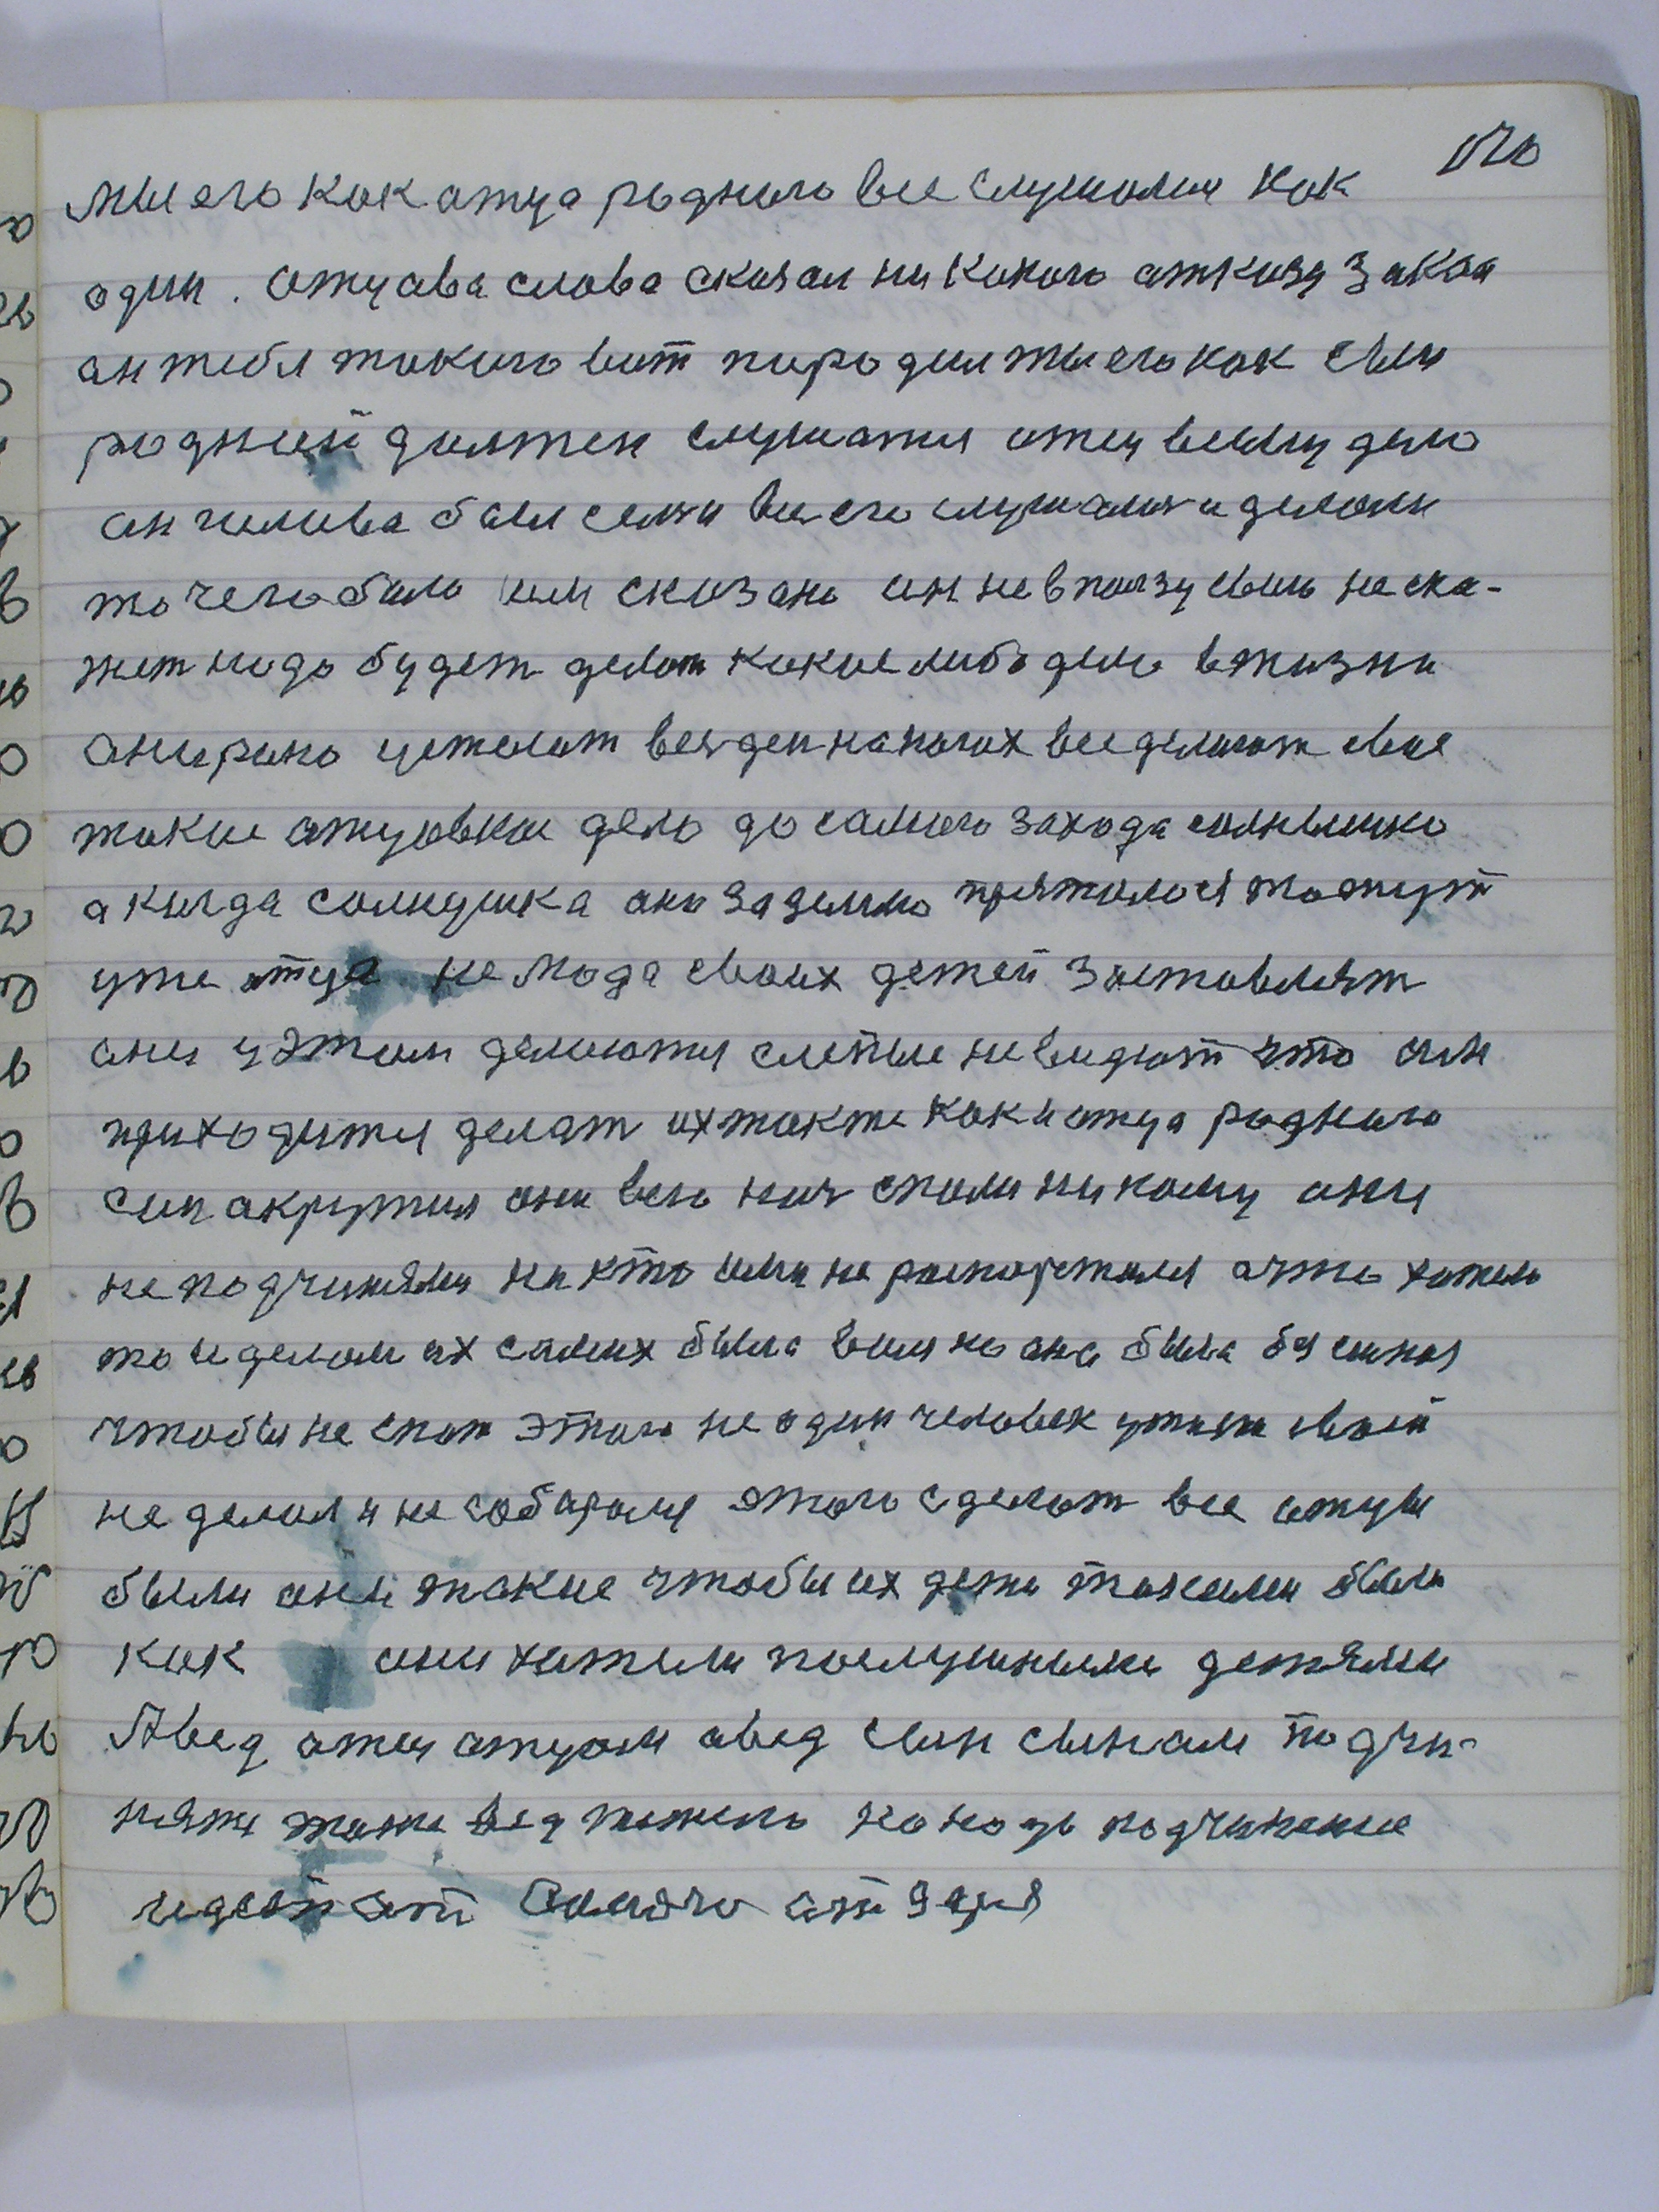 мы его как атца роднова все слушолися как
один. атцова слова сказал ни какого атказу закон
ан тебя такого вот народил ты его как сын
родный должен слушатся атец всему дело
ан галава был семи все его слушалися и делали
то чего было им сказано ан не в ползу свою не ска-
жет надо будет делат какие либо дело в жизни
ани рано усталат вез ден на ногах все делают свое
такие атцовкое дело до самого захода солнышко
а кагда солнушка ана за землю пряталося то тут
уже атца не мода своих детей заставлят
ани у этом делаются слепые не видют что им
приходится делат их также как и атца родного
сын акружил ани всю ноч спали никому ани
не подчинялися никто ими не распоржался а что хатели
то и делали их самих была воля но ана была бя силная
чтобы не спат этого не один человек у жизни своей
не делал и не собирался этого сделат все атцы
были ани такие чтобы их дети такими были
как ани хатели послушными детями
А вед атец атцом а вед сын сынам подчи-
нятся тоже вед тяжело но надо подчинение
идет от самого атца